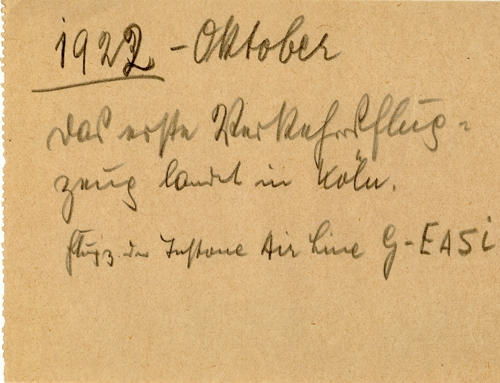 1922 - Oktober
das erste Verkehrsflug-
zeug landet in Köln.
Flugz. der Instone Air Line G-EASI